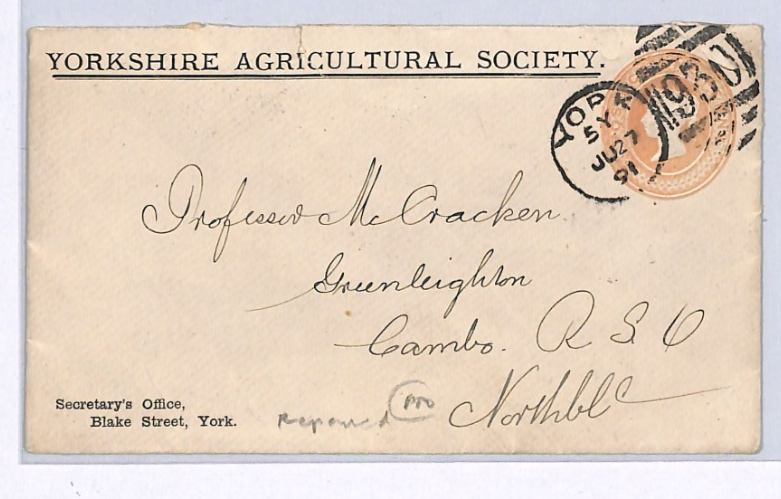 YORKSHIRE AGRICULTURAL SOCIETY.
YORK
5 Y
JU 27
91
Professor McCracken
Greenleighton
Cambo. R S O
Northbld
Secretary's Office,
Blake Street, York.